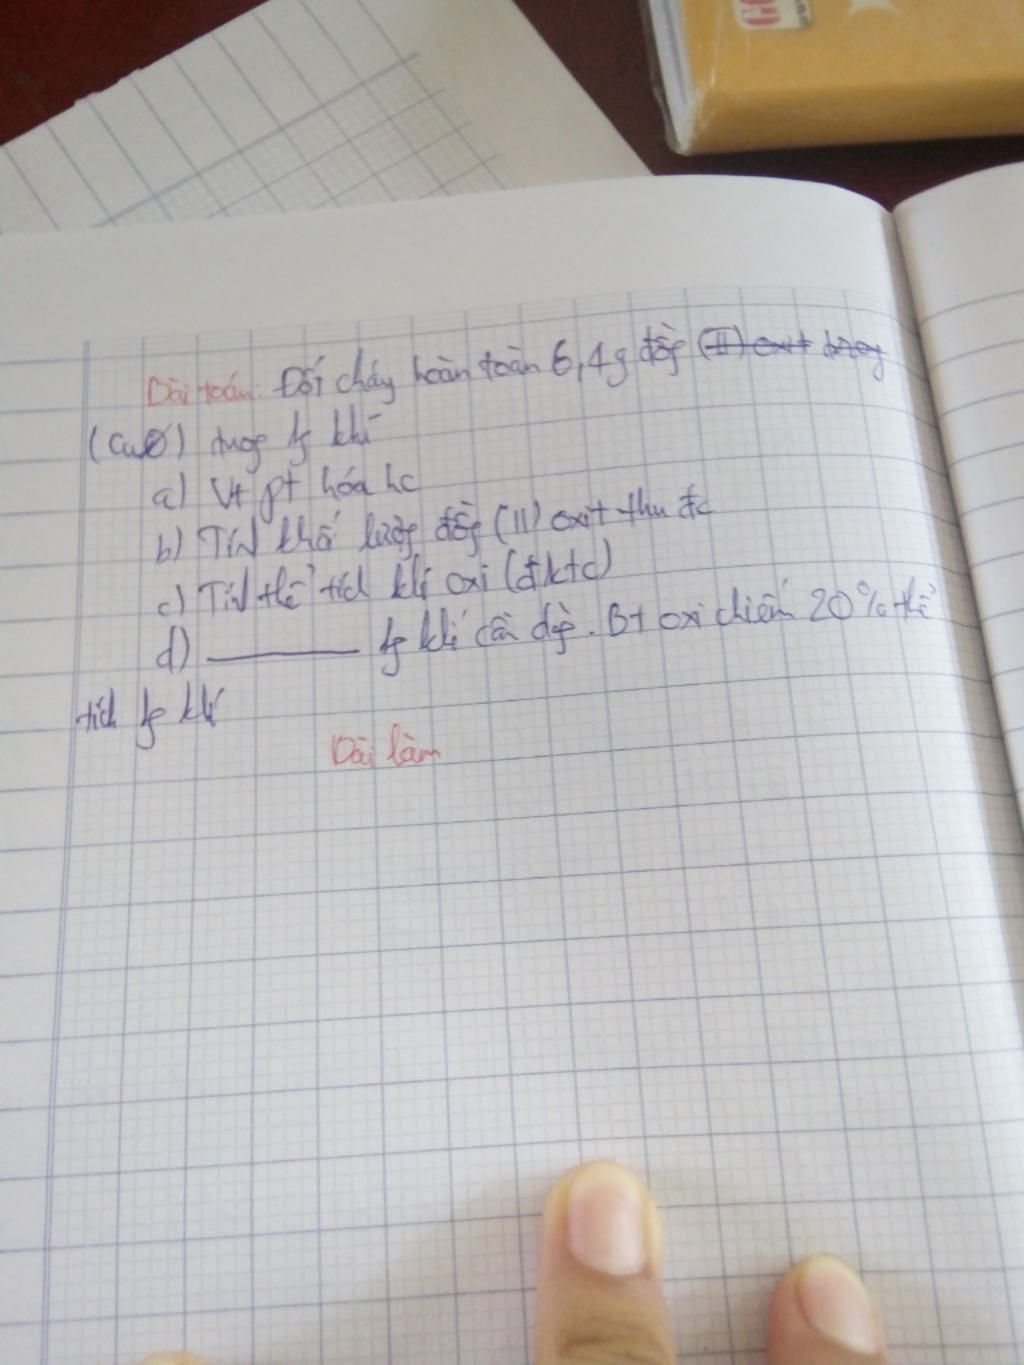 Bài toán: Đốt cháy hoàn toàn 6,4g đồg (II) oxit trog
(Cu) trog kg khí
a) Vt pt hóa hc
b) Tín khố lượg đồg (II) oxit thu đc
c) Tín thể tích khí oxi (đktc)
d) ______ kg khí cần dùg. Bt oxi chiếm 20% thể
tích kg khí
Bài làm